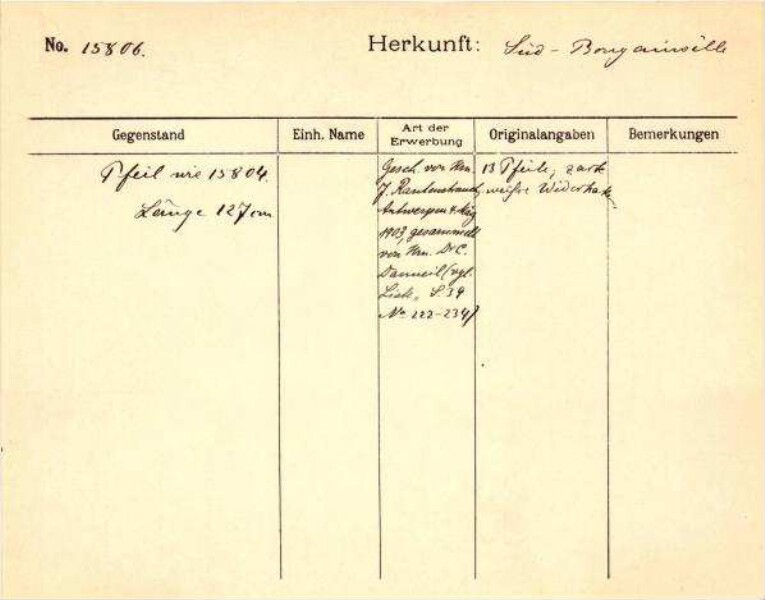 No. 15806. Herkunft: Süd-Bougainville
Gegenstand Einh. Name Art der Erwerbung Originalangaben Bemerkungen
Pfeil wie 15804.
Länge 127 cm
Gesch. von Hrn.
J. Rautenstrauch,
Antwerpen
1903, gesammelt
von Hrn. Dr C.
Danneil (vgl.
Liste, S. 39
No 222-234)
13 Pfeile, zarte
weiße Widerhak